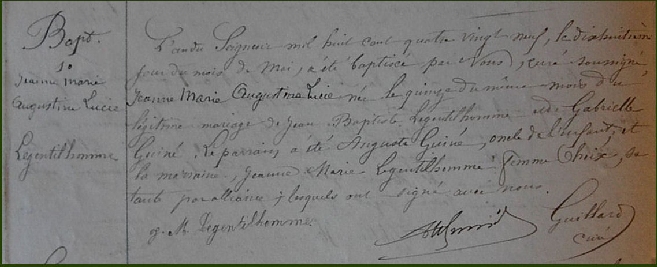 Bapt.
Jeanne Marie
Augustine Lucie
Legentilhomme
L'an du Seigneur mil huit cent quatre vingt neuf, le dix huitième
jour du mois de Mai, a été baptisée par Nous, curé soussigné
Jeanne Marie Augustine Lucie née le quinze du même mois du
légitime mariage de Jean Baptiste Legentilhomme et de Gabrielle
Guiné. Le parrain a été Auguste Guiné, oncle de l'enfant, et
la marraine, Jeanne Marie Legentilhomme femme Choix, sa
tante par alliance, lesquels ont signé avec nous.
J. M. Legentilhomme
Guillard
curé